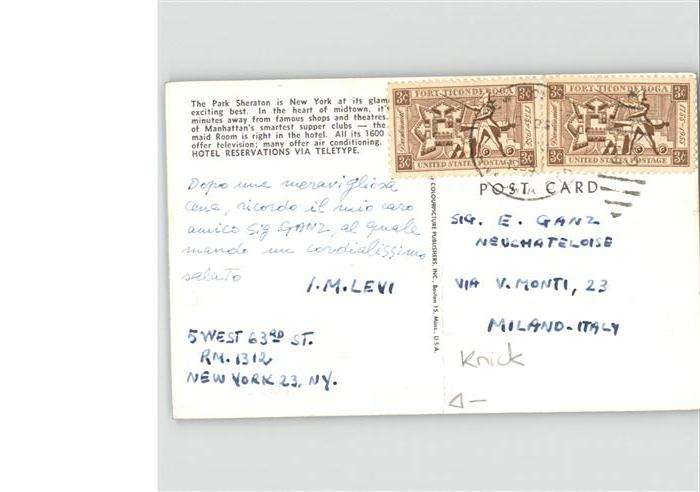 The Park Sheraton is New York at its glam
exciting best. In the heart of midtown, it's
minutes away from famous shops and theatres.
of Manhattan's smartest supper clubs — the
maid Room is right in the hotel. All its 1600
offer television; many offer air conditioning.
HOTEL RESERVATIONS VIA TELETYPE.
Dopo una meravigliosa
cena, ricordo il mio caro
amico Sig. GANZ, al quale
mando un cordialissimo
saluto
I.M.LEVI
5 WEST 63RD ST.
RM. 1312
NEW YORK 23, NY.
COLOURPICTURE PUBLISHERS, INC. Boston 15, Mass., U.S.A.
3¢ FORT TICONDEROGA 3¢
Bicentennial
1755-1955
3¢ UNITED STATES POSTAGE 3¢
3¢ FORT TICONDEROGA 3¢
Bicentennial
1755-1955
3¢ UNITED STATES POSTAGE 3¢
POST CARD
SIG. E. GANZ
NEUCHATELOISE
VIA V. MONTI, 23
MILANO-ITALY
Knick